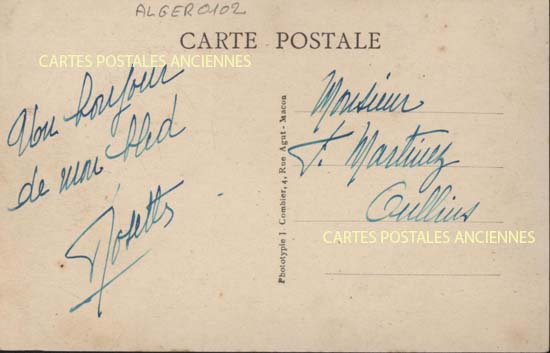 ALGER0102
CARTE POSTALE
CARTES POSTALES ANCIENNES
Mon bonjour
de mon bled
Rosette
Phototypie J. Combier, 4, Rue Agut - Macon
Monsieur
J. Martinez
Oullins
CARTES POSTALES ANCIENNES